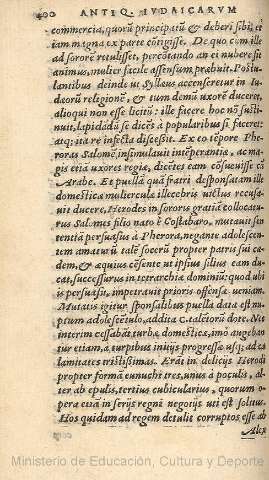 400 ANTIQ. IVDAICARVM
commercia, quorũ principatũ & deberi sibi, et
iam magna ex parte cõtigisse. De quo cum ille
ad sororẽ retulisset, percõtando an ei nubere sit
animus, mulier facile assensum præbuit. Postu-
lantibus deinde ut Syllæus accenseretur in Iu-
dæorũ religionẽ, & tum demũ uxorẽ duceret,
alioqui non esse licitũ: ille facere hoc nõ susti-
nuit, lapidadũ se dicẽs à popularibus si faceret:
atq; ita re infecta discessit. Ex eo tẽpore Phe-
roras Salomẽ insimulauit intẽperantiæ, ac ma-
gis etiã uxores regiæ, dicẽtes eam cõsueuisse cũ
Arabe. Et puella quã fratri despõsatam ille
domestica mulierculæ illecebris uictus recusa-
uit ducere, Herodes in sororis gratiã collocatu-
rus Salomes filio nato è Costabaro, mutauit sen-
tentiã persuasus à Pherora, negante adolescen-
tem amaturũ talẽ socerũ propter patris sui cæ-
dem, & æquius cẽsente ut ipsius filius eam du-
cat, successurus in tetrarchiæ dominiũ: quod ubi
is persuasit, impetrauit prioris offensæ ueniam.
Mutatis igitur sponsalibus puella data est nu-
ptum adolescẽtulo, addita C. talẽtorũ dote. Nec
interim cessabãt turbæ domesticæ, imò augeban
tur etiam, à turpibus initijs progressæ usq; ad ca
lamitates tristissimas. Erãt in delicijs Herodi
propter formã eunuchi tres, unus à poculis, al-
ter ab epulis, tertius cubicularius, quorum o-
pera etiã in serijs regni negotijs uti est solitus.
Hos quidam ad regem detulit corruptos esse ab
Alex
Ministerio de Educación, Cultura y Deporte